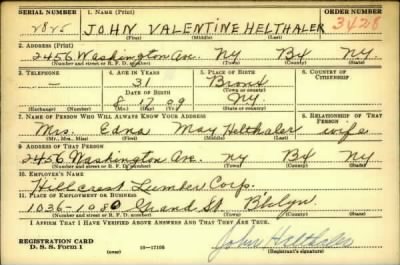 SERIAL NUMBER 1. NAME (Print) ORDER NUMBER
2825 JOHN VALENTINE HELTHALER 3428
(First) (Middle) (Last)
2. ADDRESS (Print)
2456 Washington Ave. NY Bx NY.
(Number and street or R. F. D. number) (Town) (County) (State)
3. TELEPHONE 4. AGE IN YEARS 5. PLACE OF BIRTH 6. COUNTRY OF CITIZENSHIP
- 31 Bronx
DATE OF BIRTH (Town or county)
8 17 09 NY
(Exchange) (Number) (Mo.) (Day) (Yr.) (State or country)
7. NAME OF PERSON WHO WILL ALWAYS KNOW YOUR ADDRESS 8. RELATIONSHIP OF THAT PERSON
Mrs. Edna May Helthaler wife
(Mr., Mrs., Miss) (First) (Middle) (Last)
9. ADDRESS OF THAT PERSON
2456 Washington Ave. NY Bx NY.
(Number and street or R. F. D. number) (Town) (County) (State)
10. EMPLOYER'S NAME
Hillcrest Lumber Corp.
11. PLACE OF EMPLOYMENT OR BUSINESS
1036-1080 Grand St. B'klyn.
(Number and street or R. F. D. number) (Town) (County) (State)
I AFFIRM THAT I HAVE VERIFIED ABOVE ANSWERS AND THAT THEY ARE TRUE.
REGISTRATION CARD
D. S. S. Form 1 (over) 16-17105 John Helthaler
(Registrant's signature)